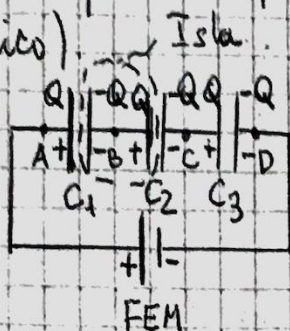 ico) Isla
Q -Q Q -Q Q -Q
A + - B + - C + - D
C1 C2 C3
+ -
FEM